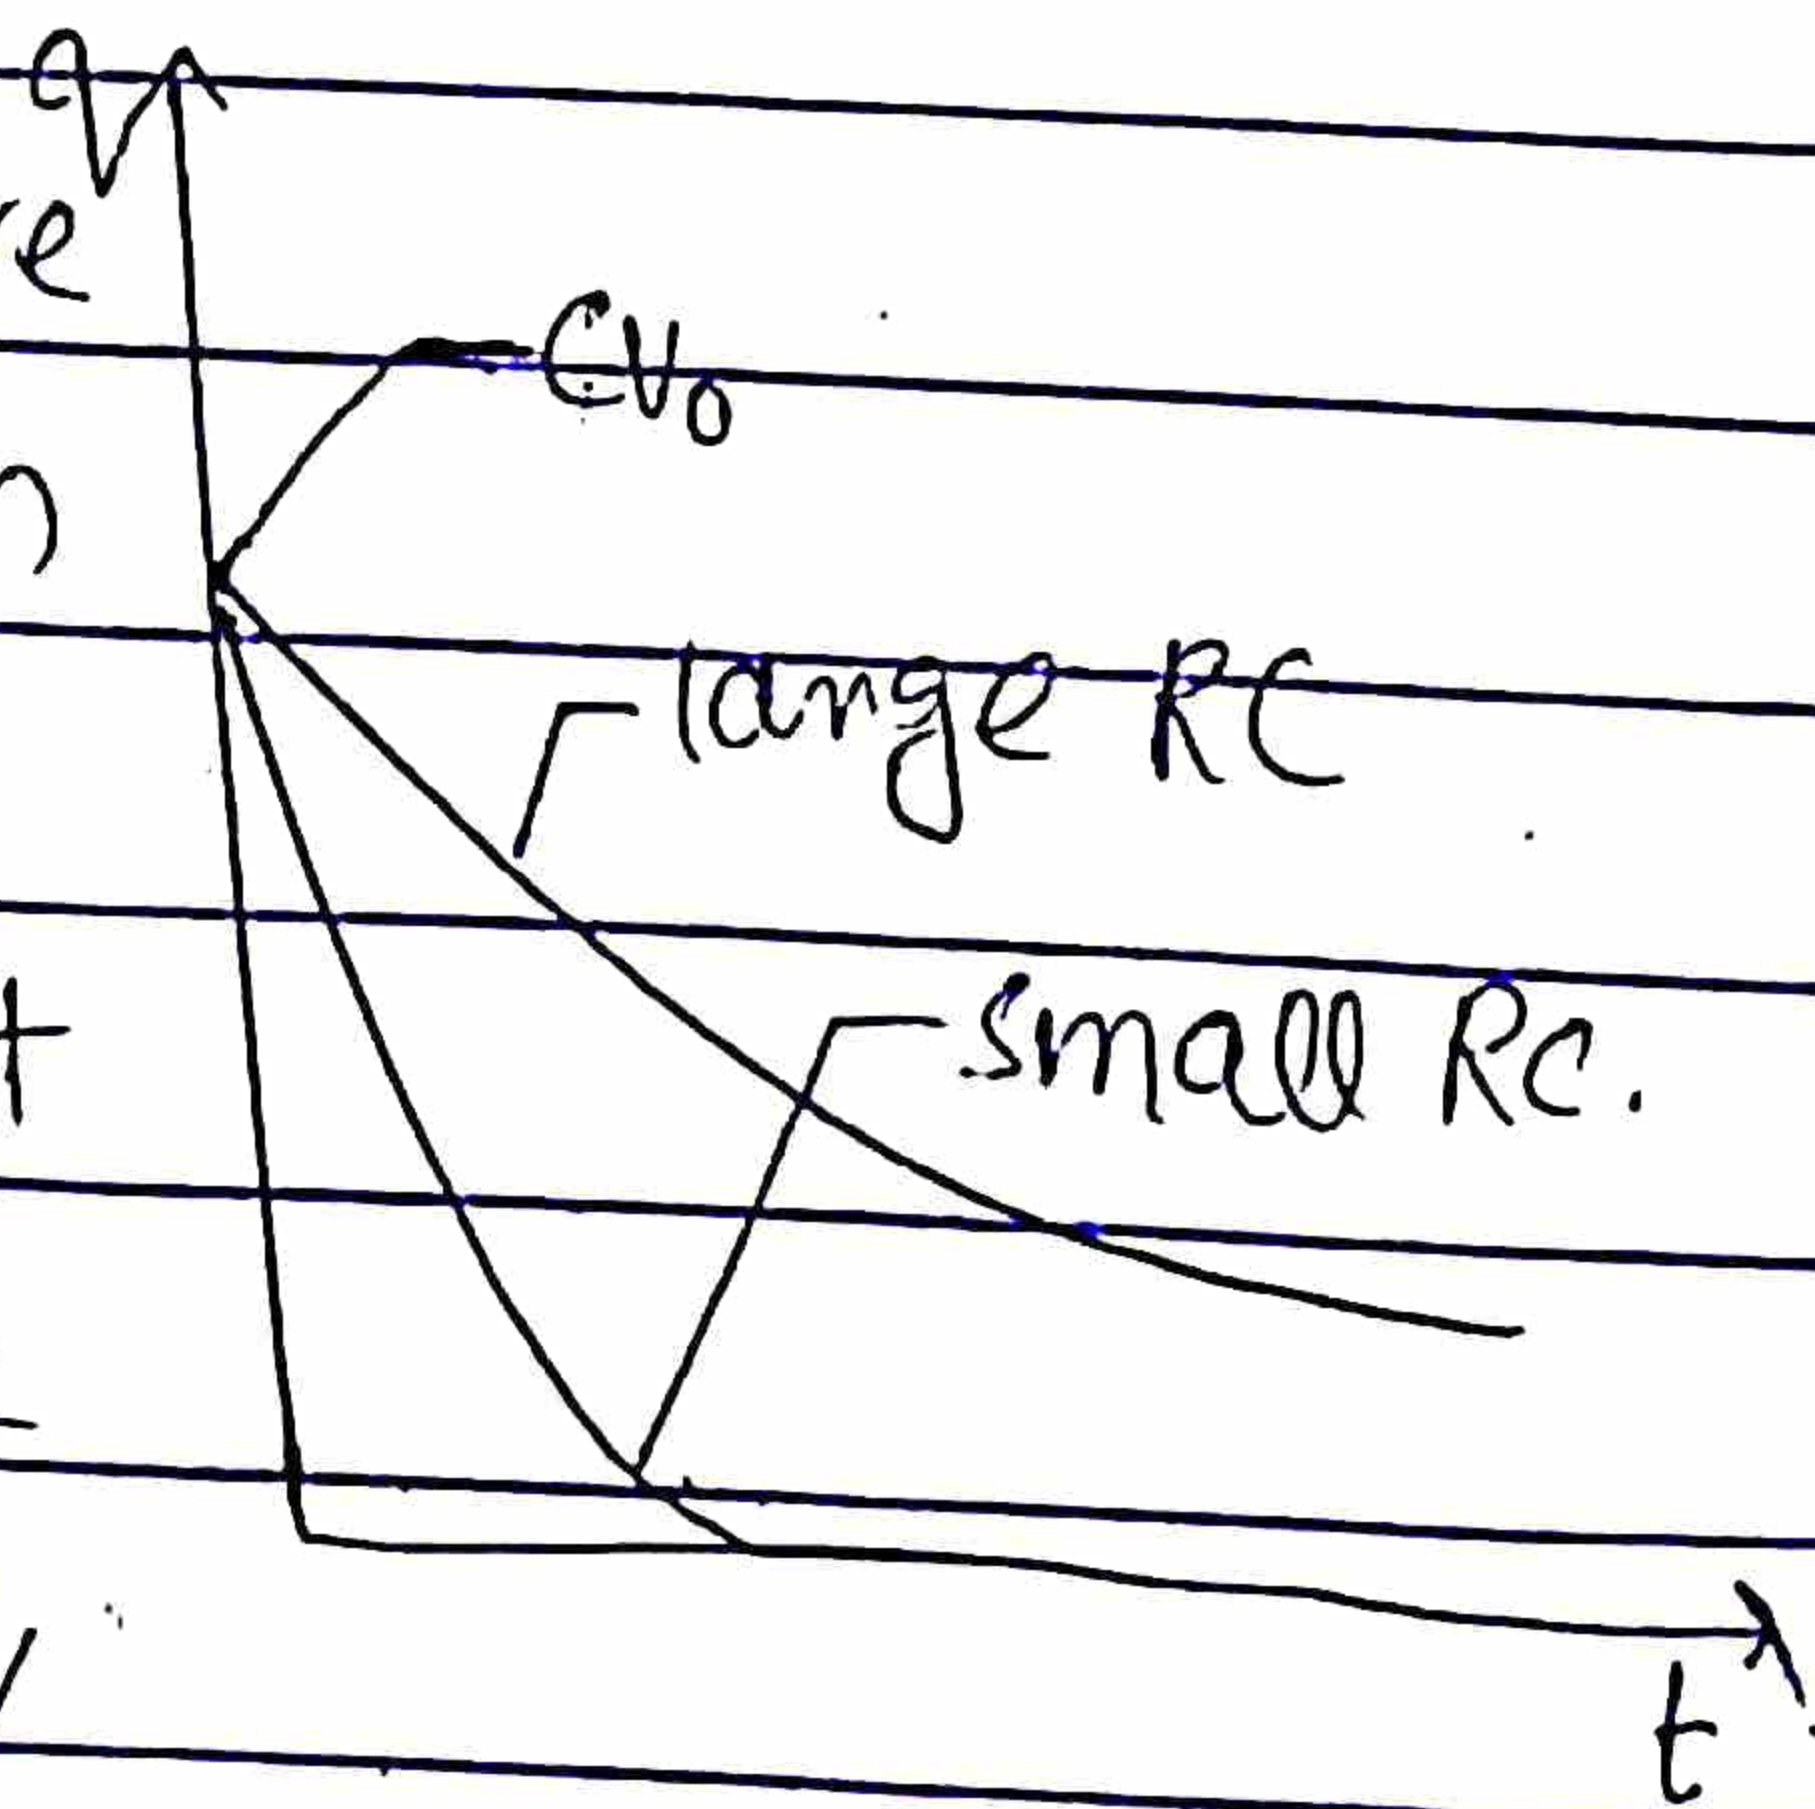 q
re
CV₀
n
large RC
t
small RC.
t